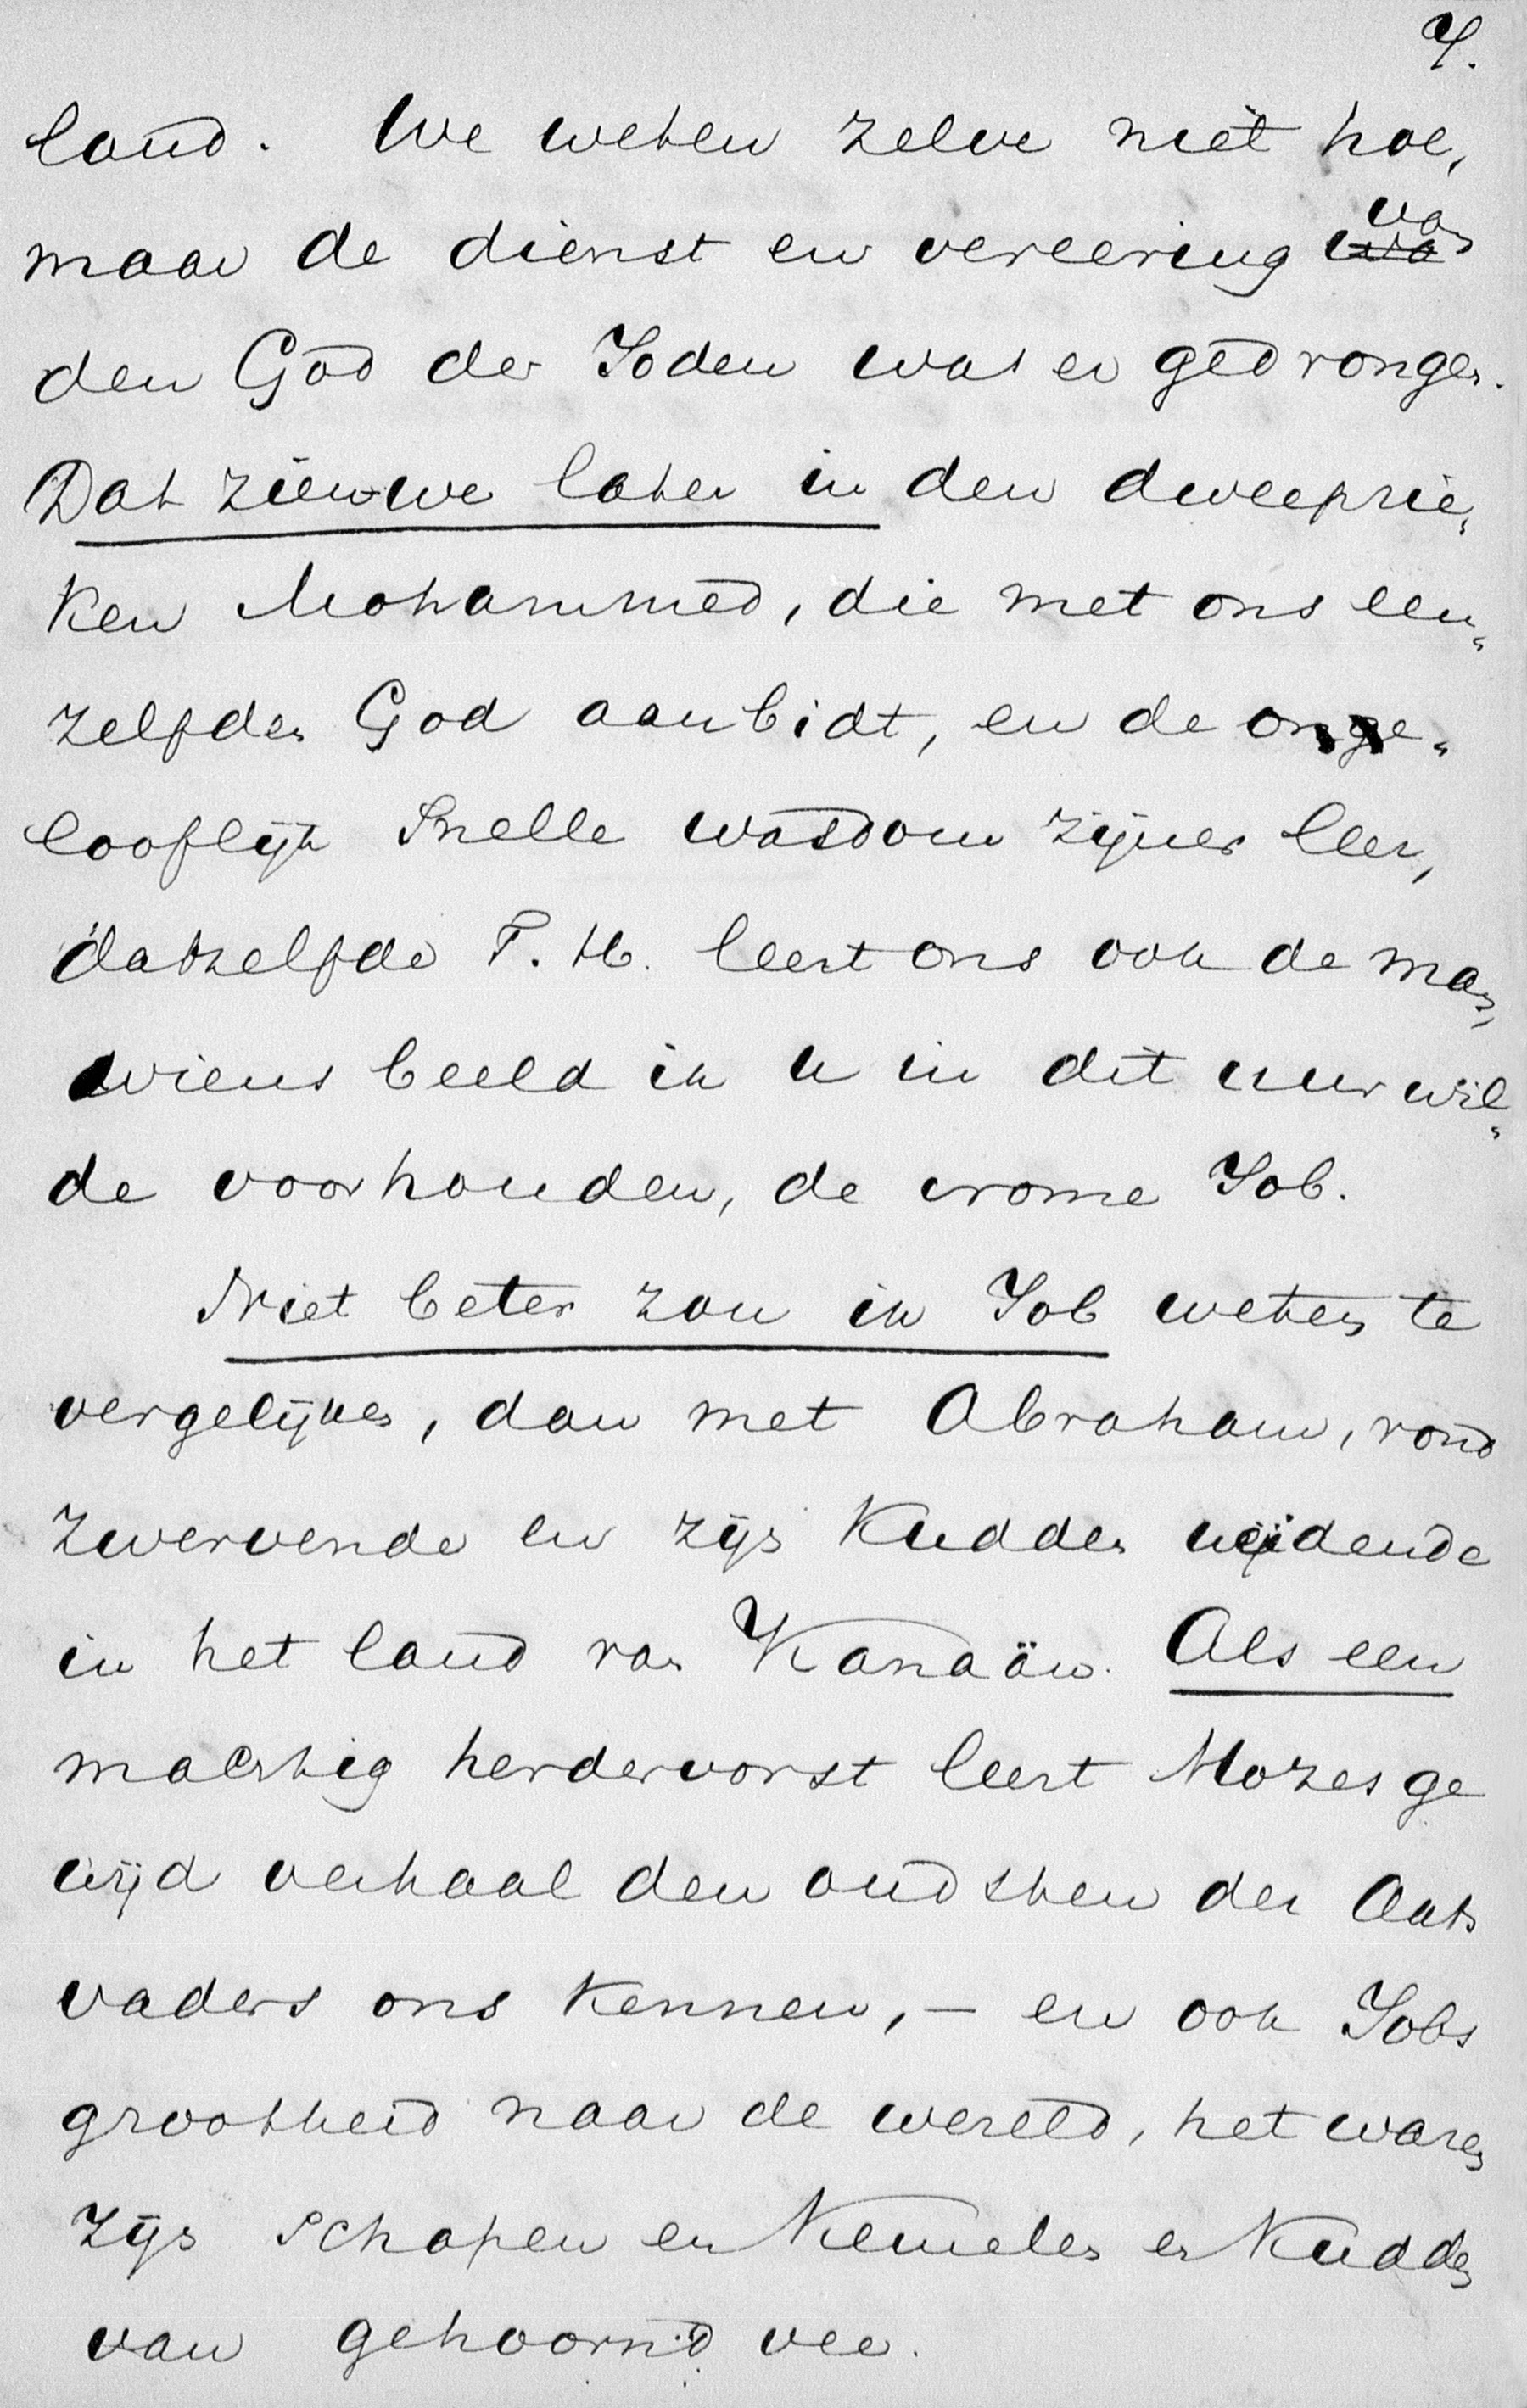 7.
land. We weten zelve niet hoe,
maar de dienst en vereering van
den God der Joden was er gedrongen.
Dat zien we later in den dweepzie,
ken Mohammed, die met ons een„
zelfden God aanbidt, en de onge„
looflijk snelle wasdom zijner leer,
datzelfde T. H. leert ons ook de man,
wiens beeld ik u in dit uur wil„
de voorhouden, de vrome Job.
Niet beter zou ik Job weten te
vergelijken, dan met Abraham, rond
zwervende en zijn kudden weidende
in het land van Kanaän. Als een
machtig herdervorst leert Mozes ge
wijd verhaal den oudsten der Aarts
vaders ons kennen, – en ook Jobs
grootheid naar de wereld, het waren
zijn schapen en kemelen en kudden
van gehoornd vee.